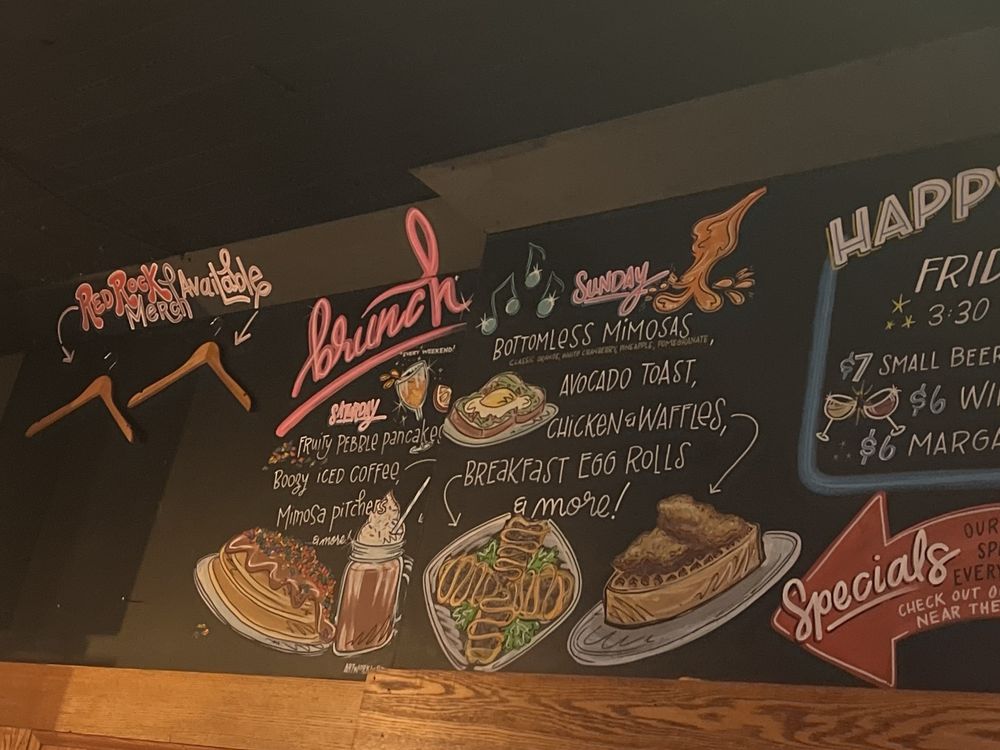 Red Rock Merch Available
brunch
"EVERY WEEKEND!"
SATURDAY
FRUITY PEBBLE PANCAKES
BOOZY ICED COFFEE,
MIMOSA PITCHERS
& more!
SUNDAY
BOTTOMLESS MIMOSAS,
CLASSIC ORANGE, WHITE CRANBERRY, PINEAPPLE, POMEGRANATE
AVOCADO TOAST,
CHICKEN & WAFFLES,
BREAKFAST EGG ROLLS
& more!
HAPPY
FRID
3:30
$7 SMALL BEER
$6 WI
$6 MARGA
Specials
OUR
SP
EVERY
CHECK OUT O
NEAR THE